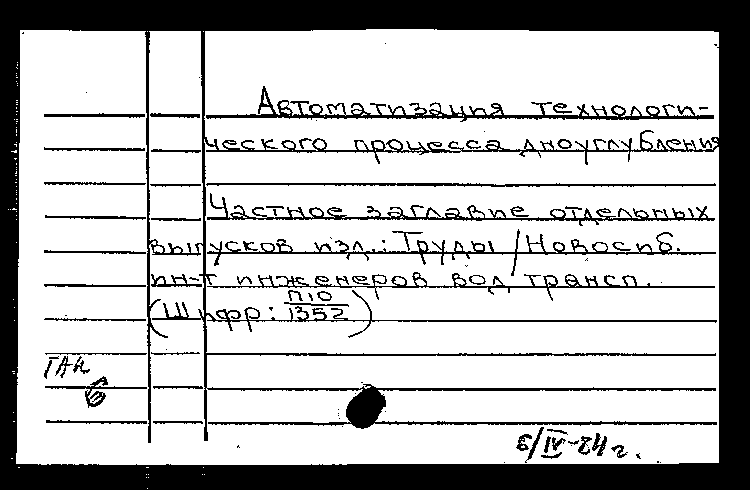 Автоматизация технологи-
ческого процесса дноуглубления
Частное заглавие отдельных
выпусков изд.: Труды / Новосиб.
ин-т инженеров вод. трансп.
(Шифр: П10/1352)
6